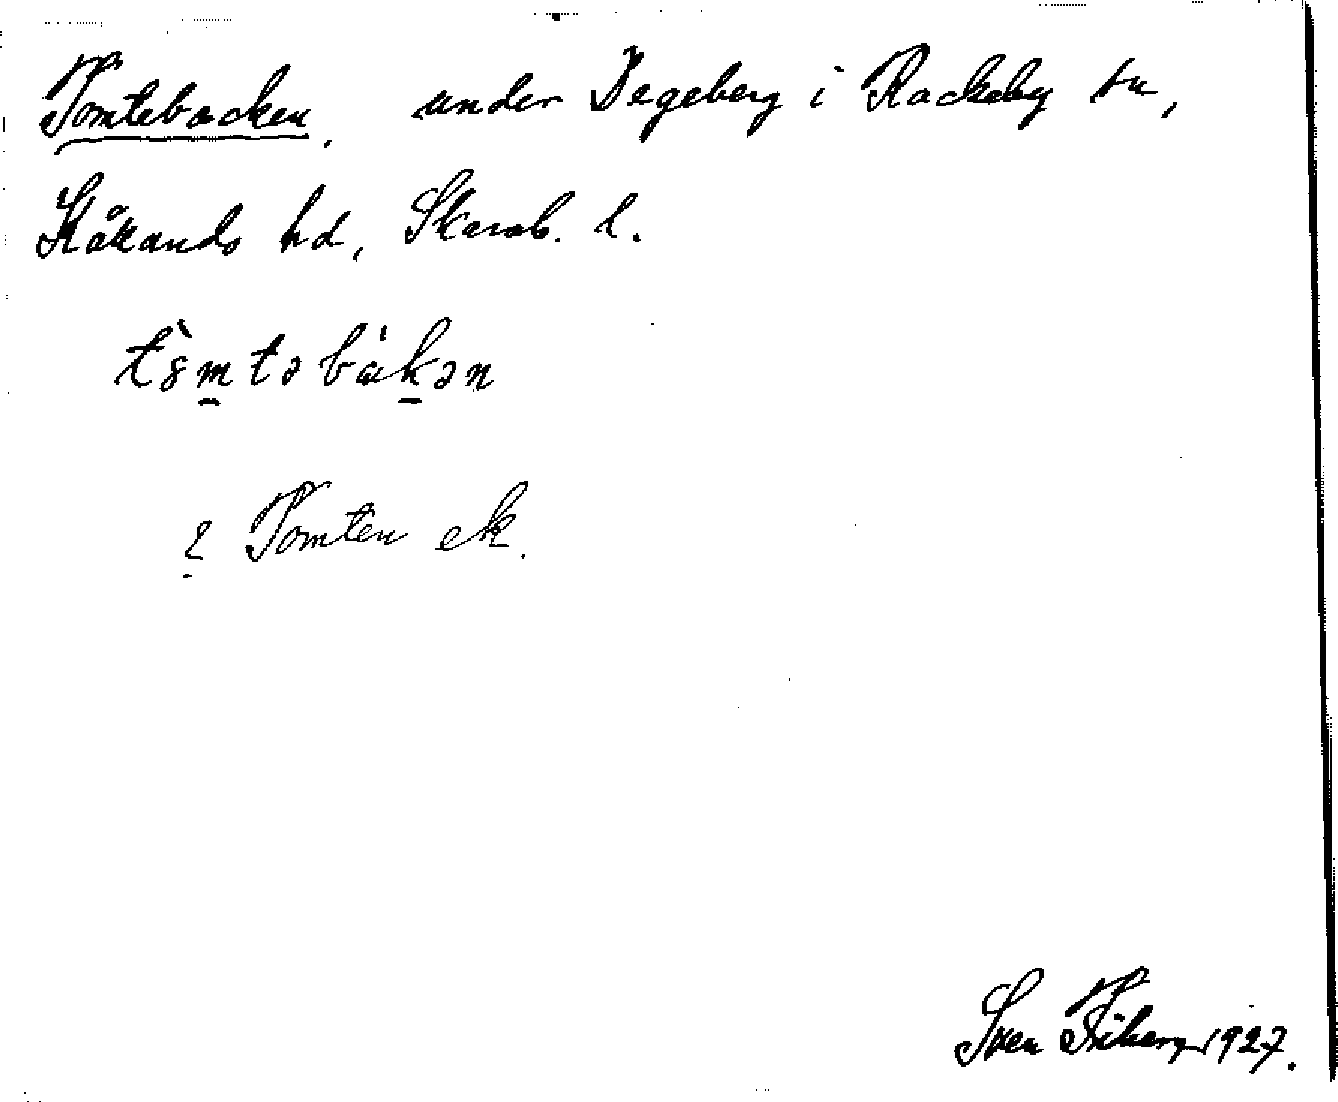 Tomtebacken, under Degeberg i Rackeby sn,
Kållands hd, Skarab. l.
tömtəbàkən
Tomten ek.
Sven Friberg 1927.